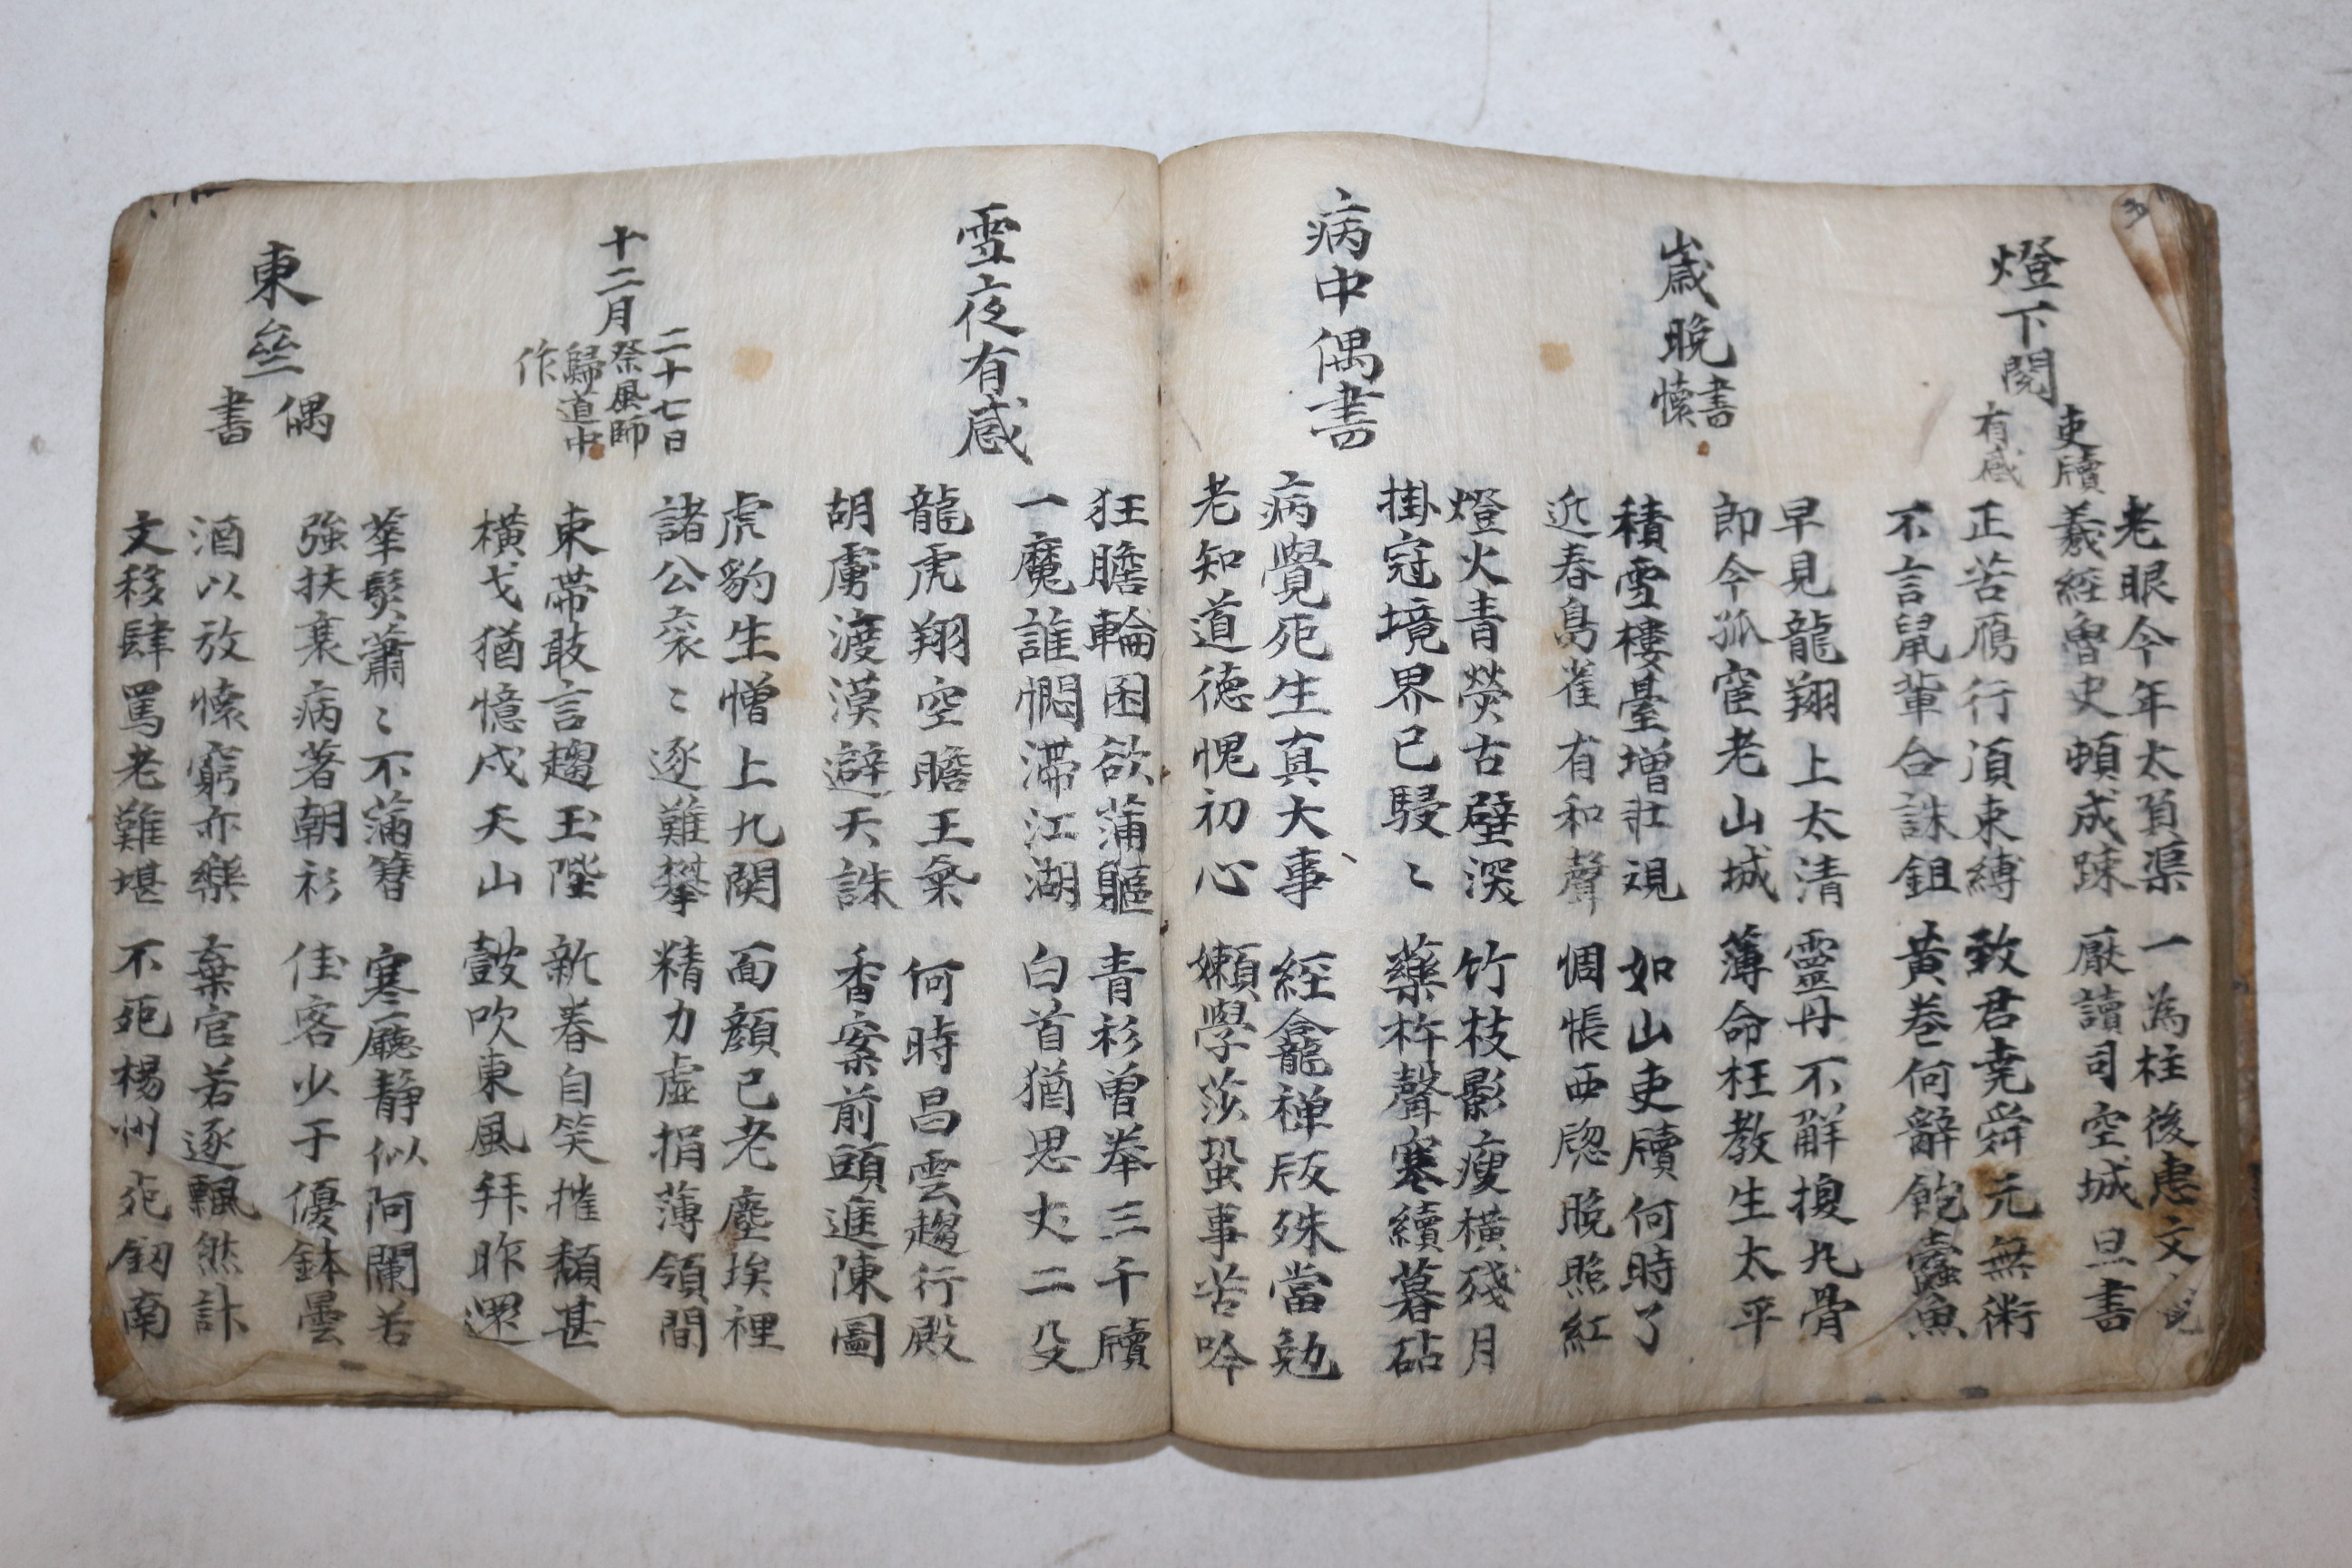 燈下閱吏牘有感
老眼今年太負渠 一為柱後惠文
羲經魯史頓成踈 厭讀司空城旦書
正苦鴈行頂束縛 致君堯舜元無術
不言鼠輩合誅鉏 黃卷何辭飽蠹魚
歲晚書懷
早見龍翔上太清 靈丹不解換九骨
即今孤宦老山城 薄命枉教生太平
積雪樓臺增壯覌 如山吏牘何時了
近春鳥雀有和聲 惆悵西牕晚照紅
病中偶書
燈火青熒古壁深 竹枝影瘦橫殘月
掛冠境界已駸〻 藥杵聲寒續暮砧
病覺死生真大事 經龕禅版殊當勉
老知道德愧初心 嬾學莎蛩事苦吟
雪夜有感
狂膽輪囷欲蒲軀 青衫曾奉三千牘
一魔誰憫滯江湖 白首猶思丈二殳
龍虎翔空瞻王氣 何時昌雲趨行殿
胡虜渡漠避天誅 香案前頭進陳圖
十二月二十七日祭風師歸道中作
虎豹生憎上九関 面顏已老塵埃裡
諸公衮〻逐難攀 精力虛捐薄領間
束帶敢言趨玉陛 新春自笑摧頹甚
橫戈猶憶戍天山 鼓吹東風拜昨還
東亝偶書
華髮蕭〻不蒲簪 寒廳靜似阿闌若
強扶衰病著朝衫 佳客少于優鉢曇
酒以放懷窮亦樂 棄官若逐飄然計
文移肆罵老難堪 不死楊州死釰南